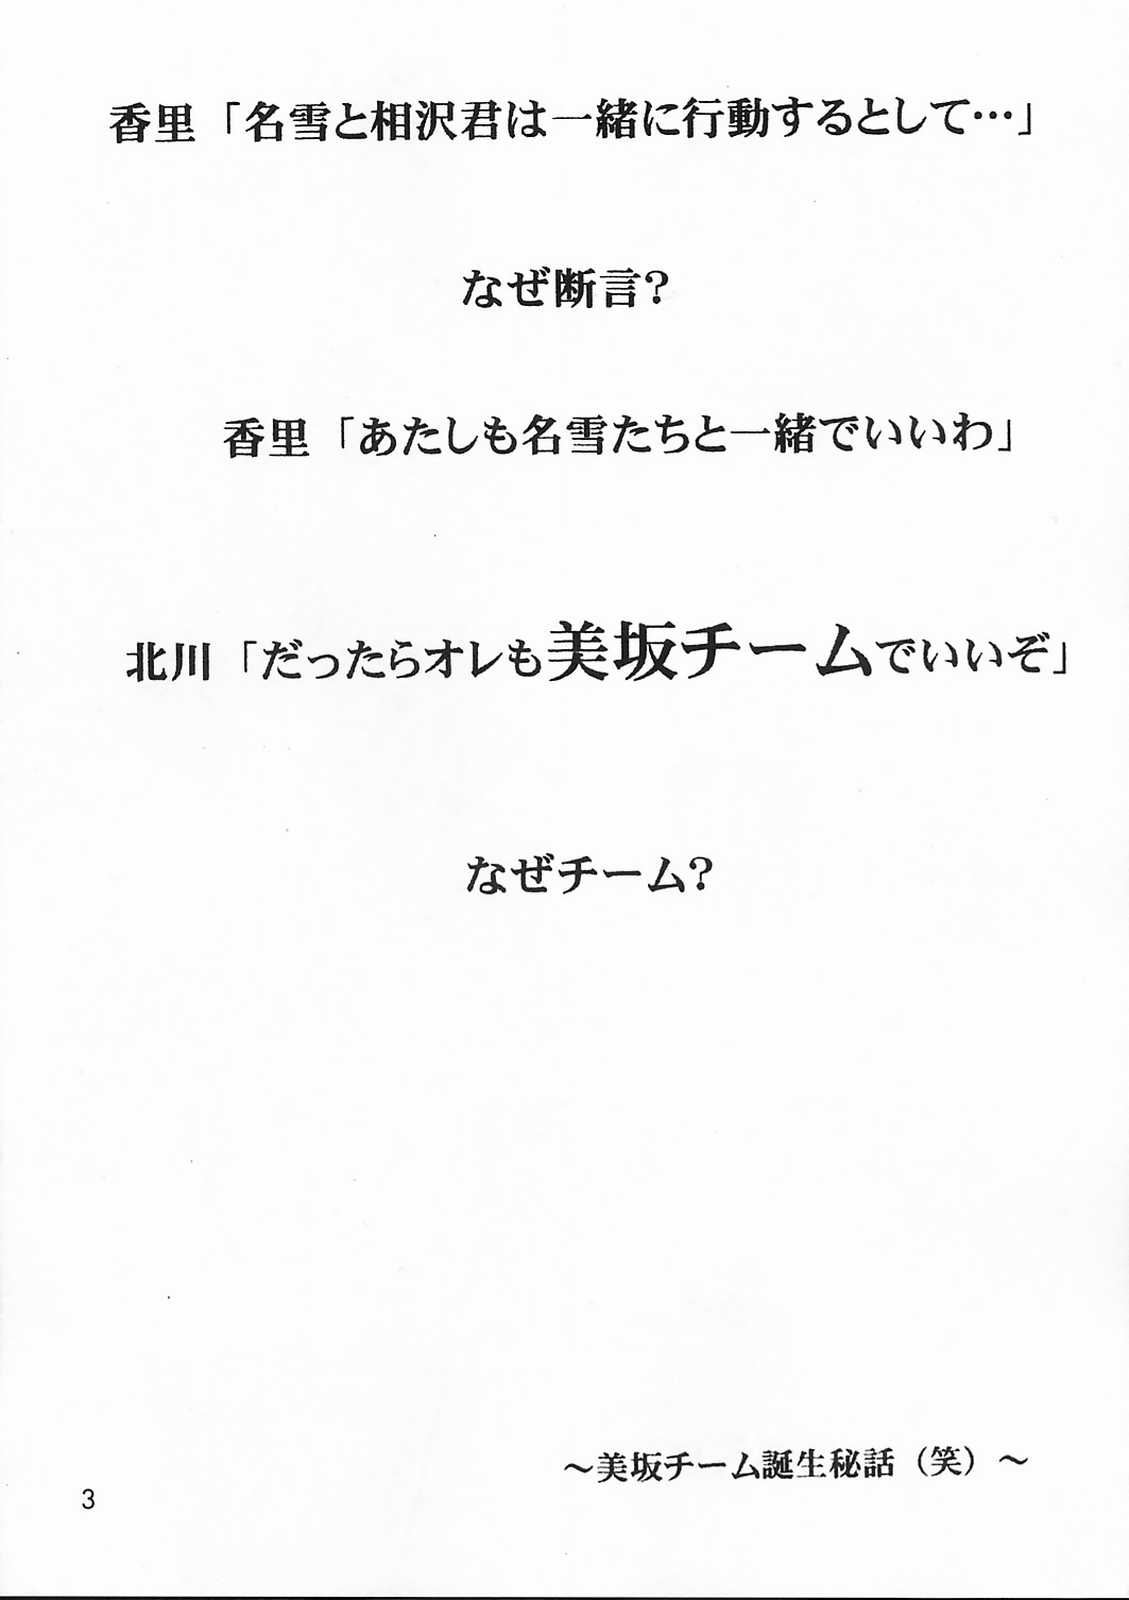 香里「名雪と相沢君は一緒に行動するとして…」
なぜ断言？
香里「あたしも名雪たちと一緒でいいわ」
北川「だったらオレも美坂チームでいいぞ」
なぜチーム？
～美坂チーム誕生秘話（笑）～
3